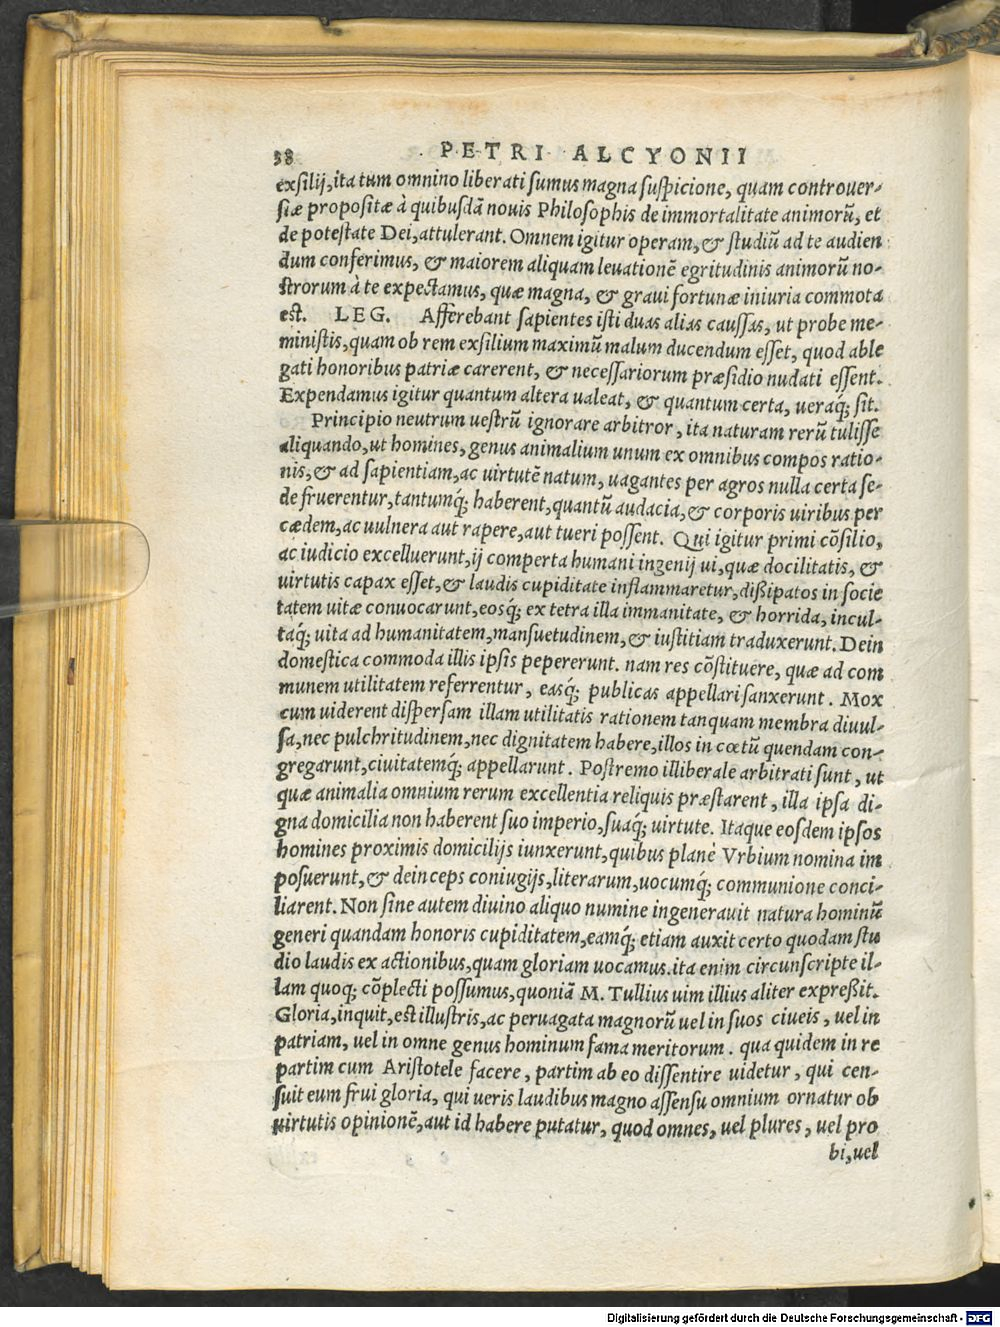 38 PETRI ALCYONII
exſilij, ita tum omnino liberati ſumus magna ſuſpicione, quam controuer-
ſiæ propoſitæ à quibuſdã nouis Philoſophis de immortalitate animorũ, et
de poteſtate Dei, attulerant. Omnem igitur operam, & ſtudiũ ad te audien
dum conferimus, & maiorem aliquam leuationẽ egritudinis animorũ no-
ſtrorum à te expectamus, quæ magna, & graui fortunæ iniuria commota
eſt. LEG. Afferebant ſapientes iſti duas alias cauſſas, ut probe me-
miniſtis, quam ob rem exſilium maximũ malum ducendum eſſet, quod able
gati honoribus patriæ carerent, & neceſſariorum præſidio nudati eſſent.
Expendamus igitur quantum altera ualeat, & quantum certa, ueraq́; ſit.
Principio neutrum ueſtrũ ignorare arbitror, ita naturam rerũ tuliſſe
aliquando, ut homines, genus animalium unum ex omnibus compos ratio-
nis, & ad ſapientiam, ac uirtutẽ natum, uagantes per agros nulla certa ſe-
de fruerentur, tantumq́; haberent, quantũ audacia, & corporis uiribus per
cædem, ac uulnera aut rapere, aut tueri poſſent. Qui igitur primi cõſilio,
ac iudicio excelluerunt, ij comperta humani ingenij ui, quæ docilitatis, &
uirtutis capax eſſet, & laudis cupiditate inflammaretur, dißipatos in ſocie
tatem uitæ conuocarunt, eosq́; ex tetra illa immanitate, & horrida, incul-
taq́; uita ad humanitatem, manſuetudinem, & iuſtitiam traduxerunt. Dein
domeſtica commoda illis ipſis pepererunt. nam res cõſtituere, quæ ad com
munem utilitatem referrentur, easq́; publicas appellari ſanxerunt. Mox
cum uiderent diſperſam illam utilitatis rationem tanquam membra diuul-
ſa, nec pulchritudinem, nec dignitatem habere, illos in cœtũ quendam con-
gregarunt, ciuitatemq́; appellarunt. Poſtremo illiberale arbitrati ſunt, ut
quæ animalia omnium rerum excellentia reliquis præſtarent, illa ipſa di-
gna domicilia non haberent ſuo imperio, ſuaq́; uirtute. Itaque eoſdem ipſos
homines proximis domicilijs iunxerunt, quibus planè Vrbium nomina im
poſuerunt, & deinceps coniugijs, literarum, uocumq́; communione conci-
liarent. Non ſine autem diuino aliquo numine ingenerauit natura hominũ
generi quandam honoris cupiditatem, eamq́; etiam auxit certo quodam ſtu
dio laudis ex actionibus, quam gloriam uocamus. ita enim circunſcripte il-
lam quoq; cõplecti poſſumus, quoniã M. Tullius uim illius aliter expreßit.
Gloria, inquit, eſt illuſtris, ac peruagata magnorũ uel in ſuos ciueis, uel in
patriam, uel in omne genus hominum fama meritorum. qua quidem in re
partim cum Ariſtotele facere, partim ab eo diſſentire uidetur, qui cen-
ſuit eum frui gloria, qui ueris laudibus magno aſſenſu omnium ornatur ob
uirtutis opinionẽ, aut id habere putatur, quod omnes, uel plures, uel pro
bi, uel
Digitalisierung gefördert durch die Deutsche Forschungsgemeinschaft - DFG